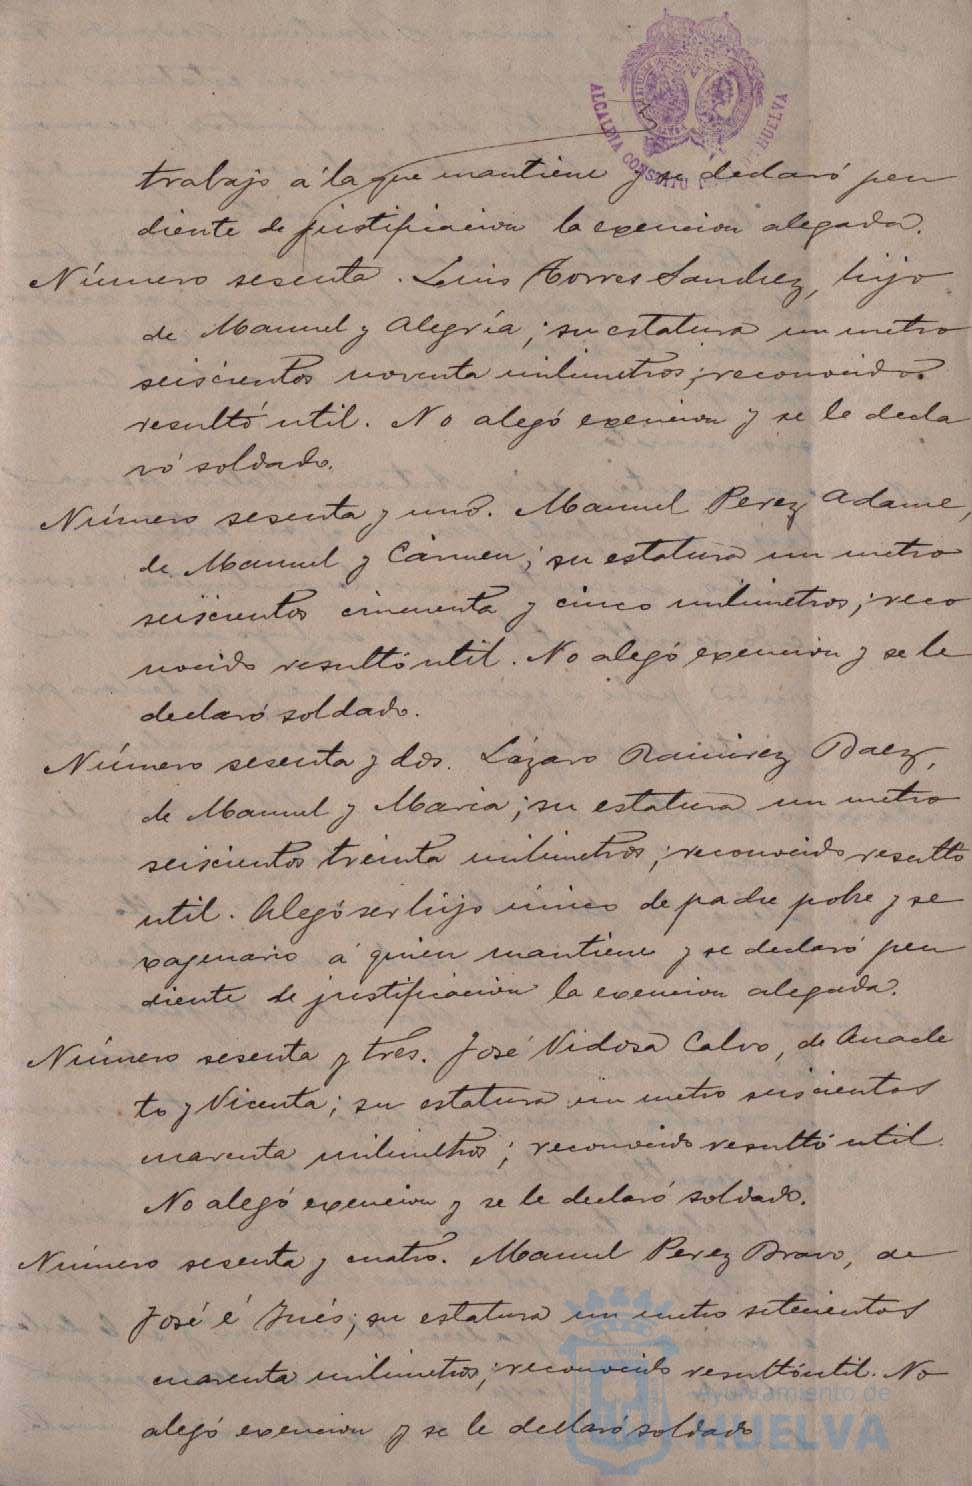 ALCALDIA CONSTITU HUELVA
trabajo á la que mantiene y se declaró pen
diente de justificacion la exencion alegada.
Número sesenta. Luis Torres Sanchez, hijo
de Manuel y Alegría; su estatura un metro
seiscientos noventa milimetros; reconocido
resultó util. No alegó exencion y se le decla
ró soldado.
Número sesenta y uno. Manuel Perez Adame,
de Manuel y Cármen; su estatura un metro
seiscientos cincuenta y cinco milimetros; reco
nocido resultó util. No alegó exencion y se le
declaró soldado.
Número sesenta y dos. Lázaro Ramirez Baez,
de Manuel y Maria; su estatura un metro
seiscientos treinta milimetros; reconocido resultó
util. Alegó ser hijo único de padre pobre y se
xagenario á quien mantiene y se declaró pen
diente de justificacion la exencion alegada.
Número sesenta y tres. José Vidosa Calvo, de Anacle
to y Vicenta; su estatura un metro seiscientos
cuarenta milimetros; reconocido resultó util.
No alegó exencion y se le declaró soldado.
Número sesenta y cuatro. Manuel Perez Bravo, de
José é Inés; su estatura un metro setecientos
cuarenta milimetros; reconocido resultó util. No
alegó exencion y se le declaró soldado
Ayuntamiento de
HUELVA